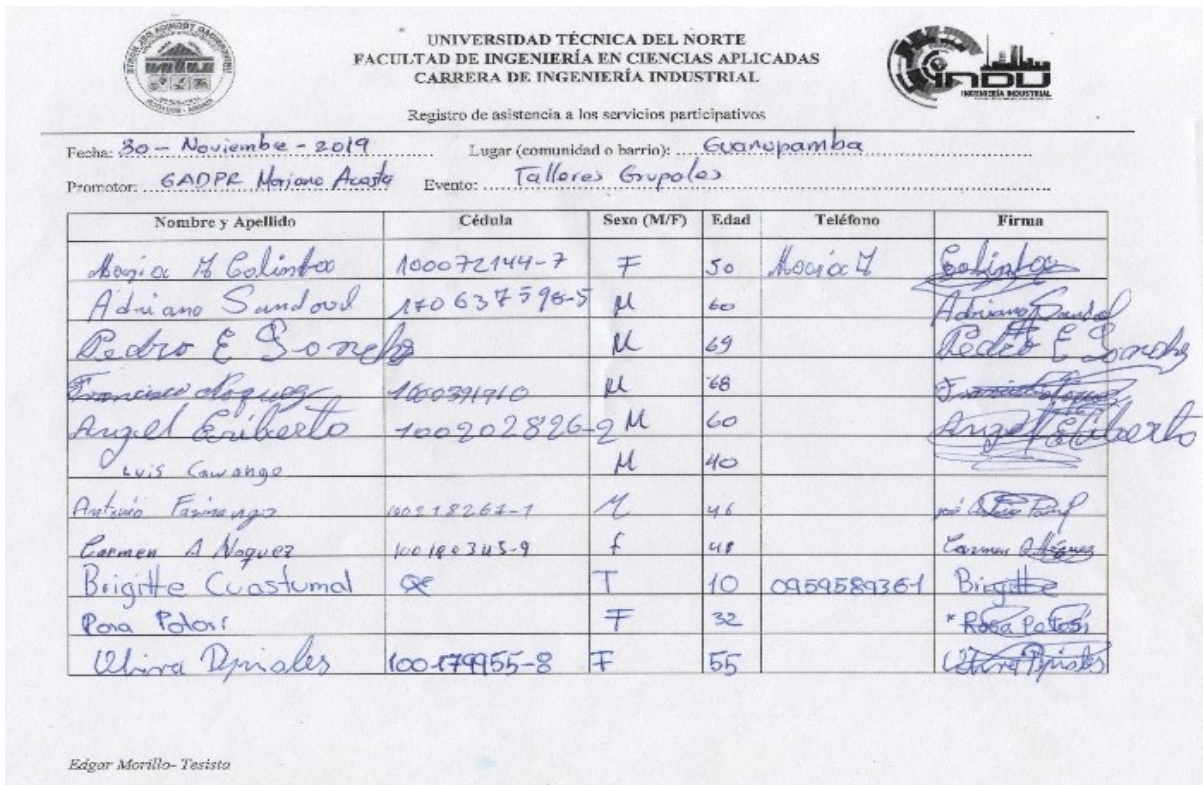 UNIVERSIDAD TÉCNICA DEL NORTE
FACULTAD DE INGENIERÍA EN CIENCIAS APLICADAS
CARRERA DE INGENIERÍA INDUSTRIAL
INDU
INGENIERÍA INDUSTRIAL
Registro de asistencia a los servicios participativos
Fecha: 30 - Noviembre - 2019 Lugar (comunidad o barrio): Guanupamba
Promotor: GADPR Mariano Acosta Evento: Talleres Grupales
Nombre y Apellido Cédula Sexo (M/F) Edad Teléfono Firma
Maria M Colimba 100072144-7 F 50 Maria M Colimba
Adriano Sandoval 170637598-5 M 60 Adriano Sandoval
Pedro E M 69 Pedro E
Francisco Noquez 1000391710 M 68 Francisco Noquez
Angel Eriberto 100202826-2 M 60 Angel Eriberto
Luis M 40
Antonio Farinango 100218267-1 M 46 José
Carmen A Noquez 100180345-9 f 48 Carmen A Noquez
Brigitte Cuastumal T 10 0959589361 Brigitte
Rosa Potosi F 32 * Rosa Potosi
100179955-8 F 55
Edgar Morillo- Tesista